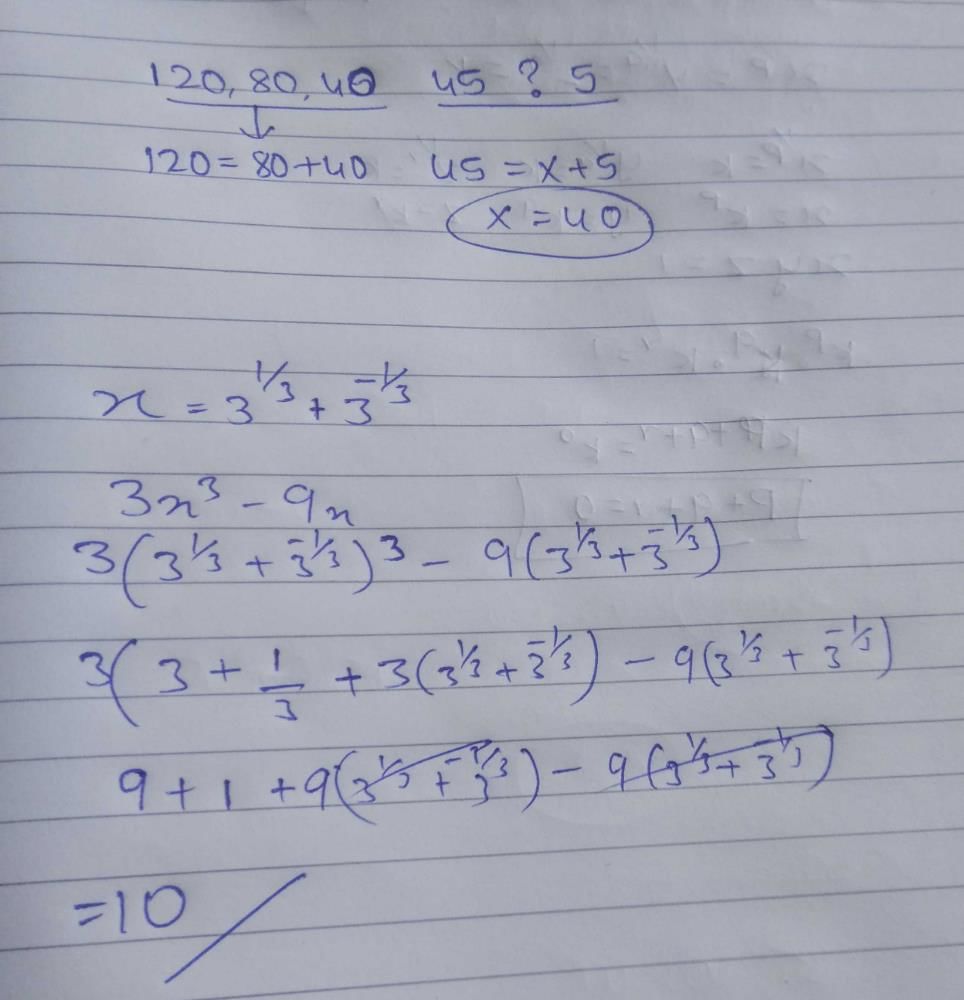 120, 80, 40 45 ? 5
↓
120 = 80+40 45 = x+5
x = 40
x = 3^{1/3} + 3^{-1/3}
3x^3 - 9x
3(3^{1/3} + 3^{-1/3})^3 - 9(3^{1/3} + 3^{-1/3})
3(3 + 1/3 + 3(3^{1/3} + 3^{-1/3}) - 9(3^{1/3} + 3^{-1/3})
9 + 1 + 9(3^{1/3} + 3^{-1/3}) - 9(3^{1/3} + 3^{1/3})
=10